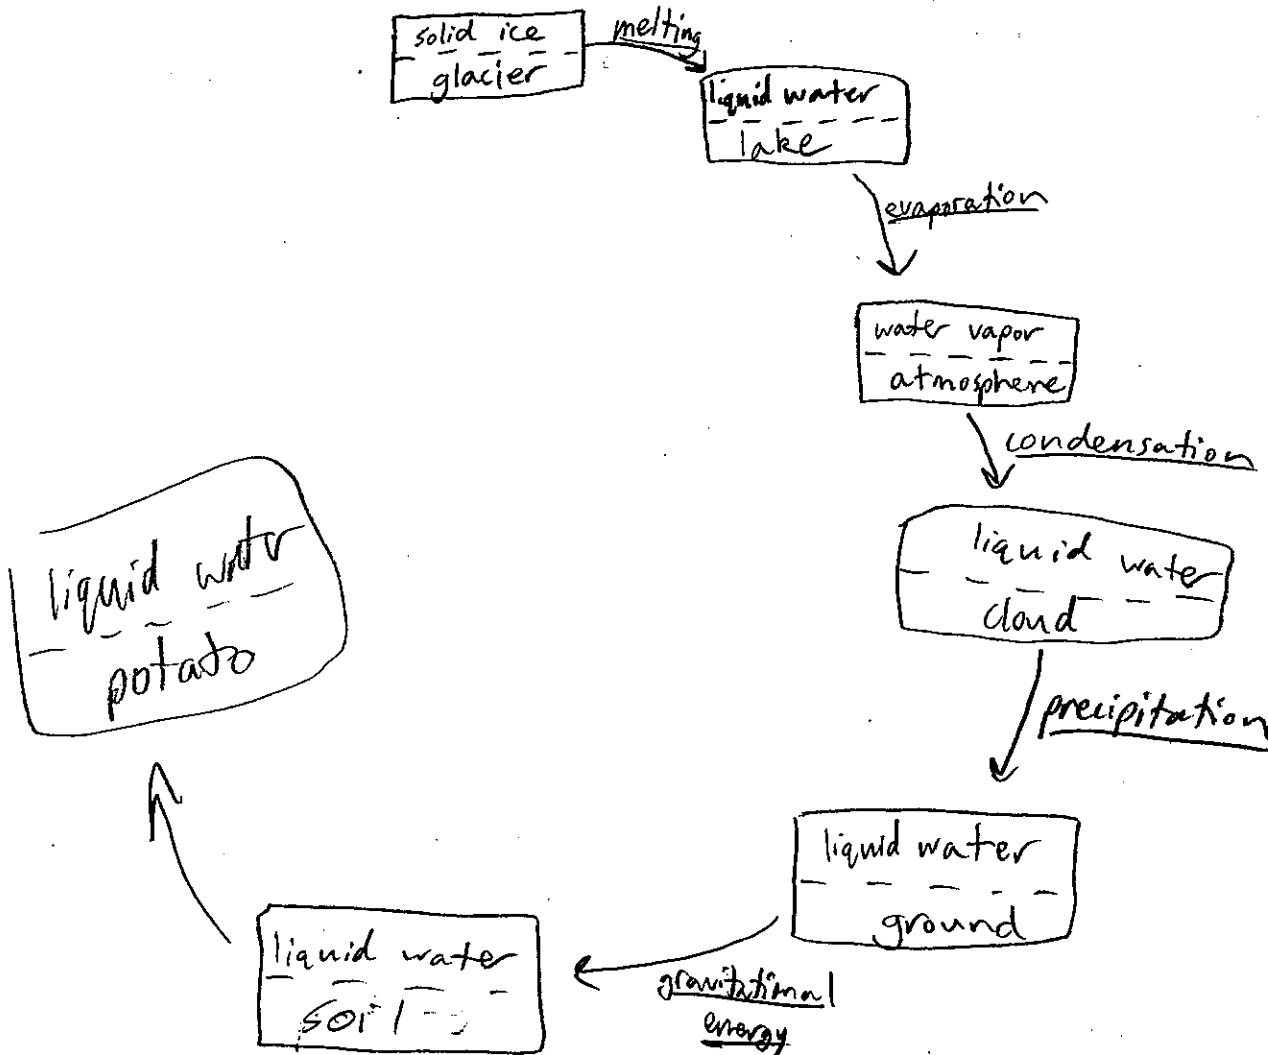 solid ice
glacier
melting
liquid water
lake
evaporation
water vapor
atmosphere
condensation
liquid water
cloud
precipitation
liquid water
ground
gravitational
energy
liquid water
soil
liquid water
potato